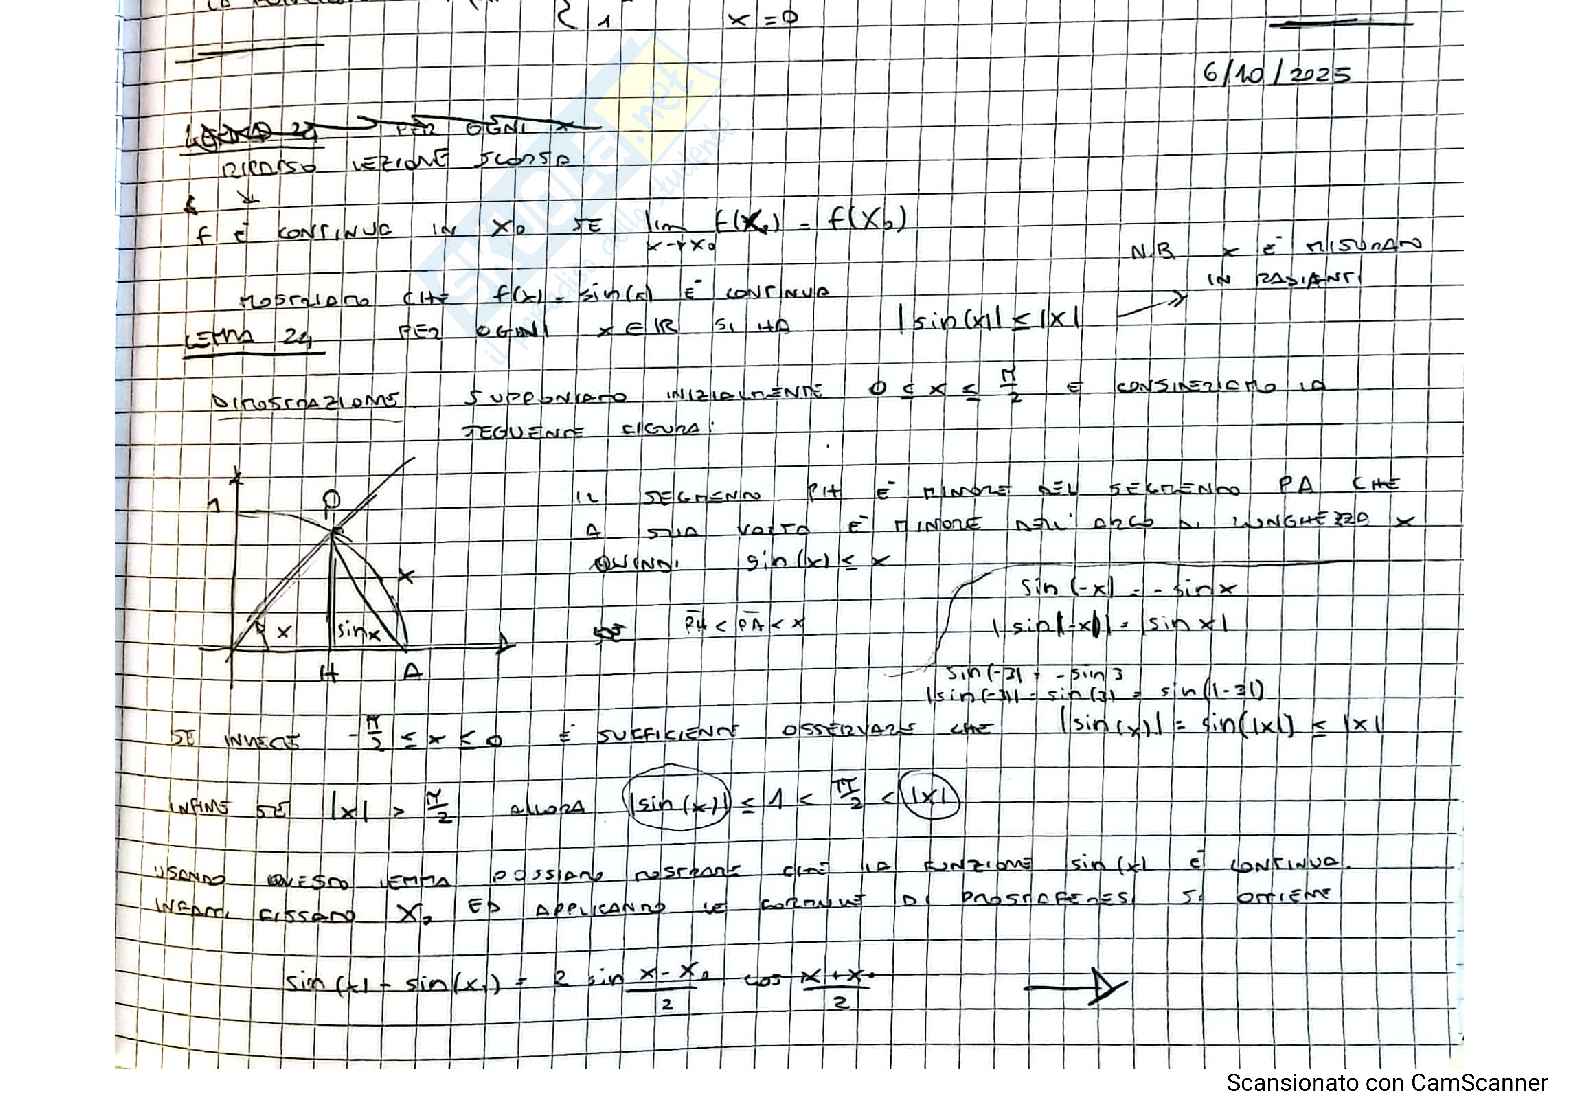 { 1 x = 0
6/10/2025
PER OGNI x
RIPASSO LEZIONE SCORSA
f È CONTINUA IN X₀ SE lim x→x₀ f(x) = f(x₀)
N.B. x È MISURATO
IN RADIANTI
MOSTRIAMO CHE f(x) = sin(x) È CONTINUA
LEMMA 24 PER OGNI x ∈ ℝ SI HA |sin(x)| ≤ |x|
DIMOSTRAZIONE SUPPONIAMO INIZIALMENTE 0 ≤ x ≤ π/2 E CONSIDERIAMO LA
SEGUENTE FIGURA:
1 P x x sinx H A
IL SEGMENTO PH È MINORE DEL SEGMENTO PA CHE
A SUA VOLTA È MINORE DELL'ARCO DI LUNGHEZZA x
QUINDI sin(x) ≤ x
PH < PA < x
sin(-x) = - sinx
|sin(-x)| = |sinx|
sin(-3) = -sin3
|sin(-3)| = sin(3) = sin(|-3|)
SE INVECE -π/2 ≤ x ≤ 0 È SUFFICIENTE OSSERVARE CHE |sin(x)| = sin(|x|) ≤ |x|
INFINE SE |x| > π/2 ALLORA |sin(x)| ≤ 1 < π/2 < |x|
USANDO QUESTO LEMMA POSSIAMO MOSTRARE CHE LA FUNZIONE sin(x) È CONTINUA.
INFATTI FISSATO X₀ ED APPLICANDO LE FORMULE DI PROSTAFERESI SI OTTIENE
sin(x) - sin(x₀) = 2 sin x-x₀/2 cos x+x₀/2 →
Scansionato con CamScanner